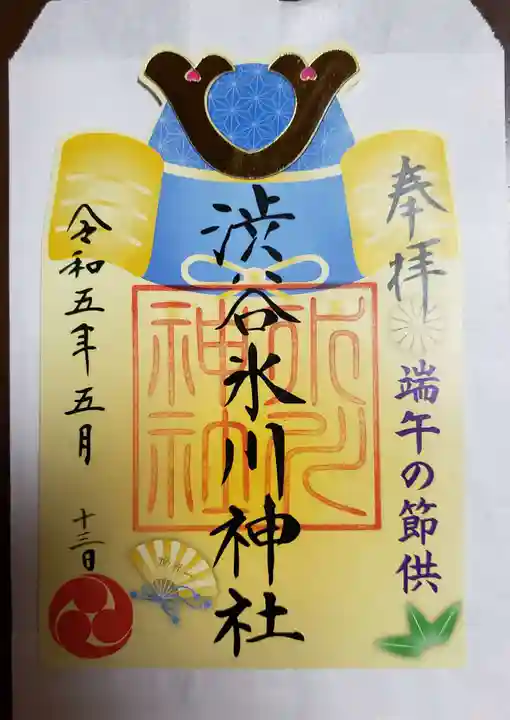 奉拝
端午の節供
渋谷氷川神社
氷川
神社
令和五年五月
十三日